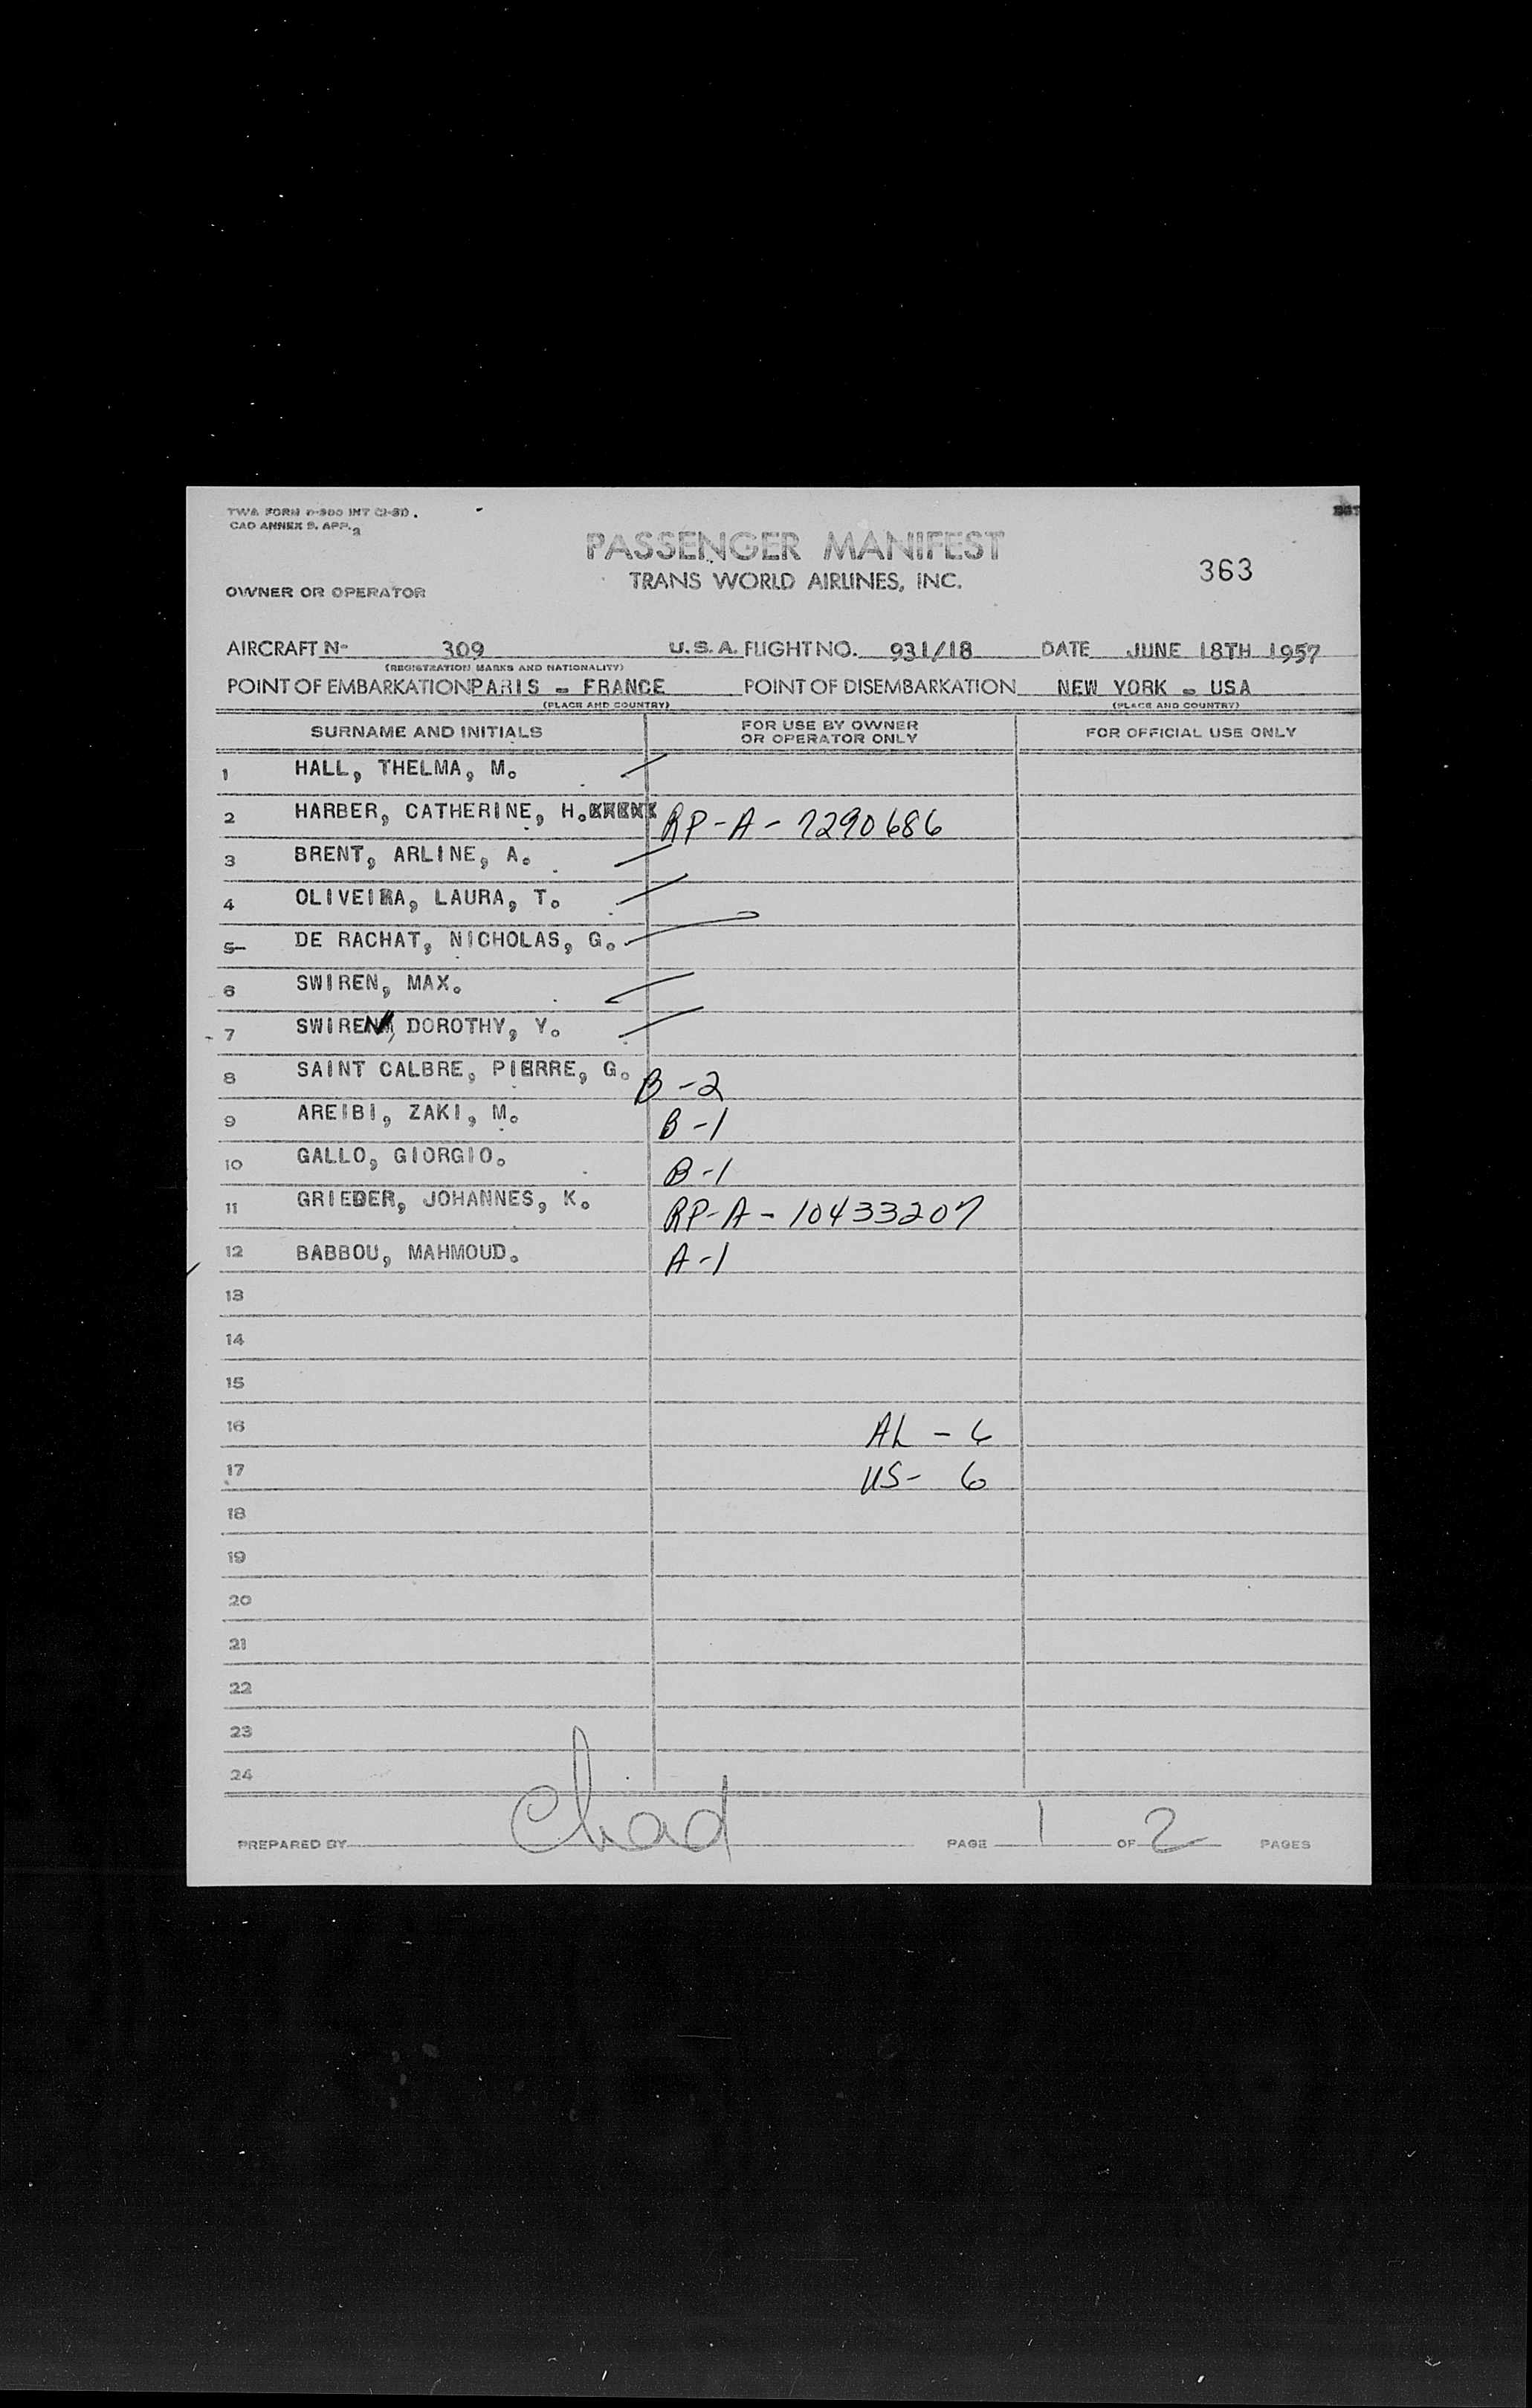 TWA FORM
CAO ANNEX 9. APP. 2
PASSENGER MANIFEST
TRANS WORLD AIRLINES, INC.
363
OWNER OR OPERATOR
AIRCRAFT N- 309 U.S.A. FLIGHT NO. 931/18 DATE JUNE 18TH 1957
(REGISTRATION MARKS AND NATIONALITY)
POINT OF EMBARKATION PARIS - FRANCE POINT OF DISEMBARKATION NEW YORK - USA
(PLACE AND COUNTRY) (PLACE AND COUNTRY)
SURNAME AND INITIALS FOR USE BY OWNER OR OPERATOR ONLY FOR OFFICIAL USE ONLY
1 HALL, THELMA, M.
2 HARBER, CATHERINE, H. RP-A-7290686
3 BRENT, ARLINE, A.
4 OLIVEIRA, LAURA, T.
5 DE RACHAT, NICHOLAS, G.
6 SWIREN, MAX.
7 SWIREN, DOROTHY, Y.
8 SAINT CALBRE, PIERRE, G. B-2
9 AREIBI, ZAKI, M. B-1
10 GALLO, GIORGIO. B-1
11 GRIEDER, JOHANNES, K. RP-A-10433207
12 BABBOU, MAHMOUD. A-1
13
14
15
16 AL - 6
17 US - 6
18
19
20
21
22
23
24
PREPARED BY Chad PAGE 1 OF 2 PAGES